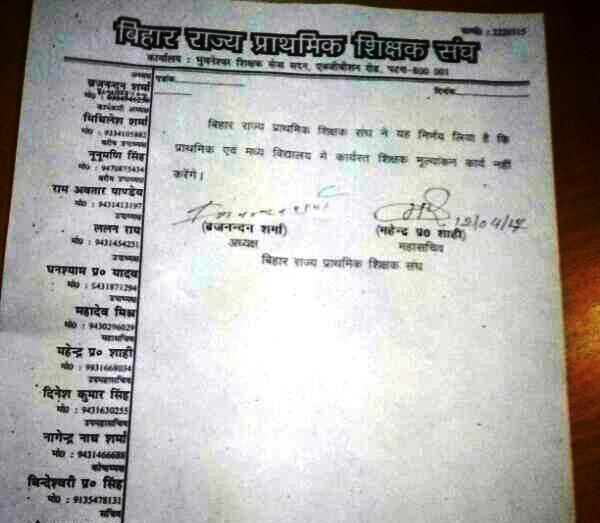 कार्या० : 2220115
बिहार राज्य प्राथमिक शिक्षक संघ
कार्यालय : भुवनेश्वर शिक्षक सेवा सदन, एक्जीबीशन रोड, पटना-800 001
पत्रांक
दिनांक
अध्यक्ष
ब्रजनन्दन शर्मा
मो०
कार्यकारी अध्यक्ष
मिथिलेश शर्मा
मो० : 9334105882
वरीय उपाध्यक्ष
नुनुमणि सिंह
मो० : 9470875434
वरीय उपाध्यक्ष
राम अवतार पाण्डेय
मो० : 9431413197
उपाध्यक्ष
ललन राय
मो० : 9431454251
उपाध्यक्ष
घनश्याम प्र० यादव
मो० : 9431871294
उपाध्यक्ष
महादेव मिश्र
मो० : 9430296029
महासचिव
महेन्द्र प्र० शाही
मो० : 9931668034
उपमहासचिव
दिनेश कुमार सिंह
मो० : 9431630255
उपमहासचिव
नागेन्द्र नाथ शर्मा
मो० : 9431466688
कोषाध्यक्ष
बिन्देश्वरी प्र० सिंह
मो० : 9135478131
सचिव
बिहार राज्य प्राथमिक शिक्षक संघ ने यह निर्णय लिया है कि
प्राथमिक एवं मध्य विद्यालय में कार्यरत शिक्षक मूल्यांकन कार्य नहीं
करेंगे।
12/04/17
(ब्रजनन्दन शर्मा) (महेन्द्र प्र० शाही)
अध्यक्ष महासचिव
बिहार राज्य प्राथमिक शिक्षक संघ